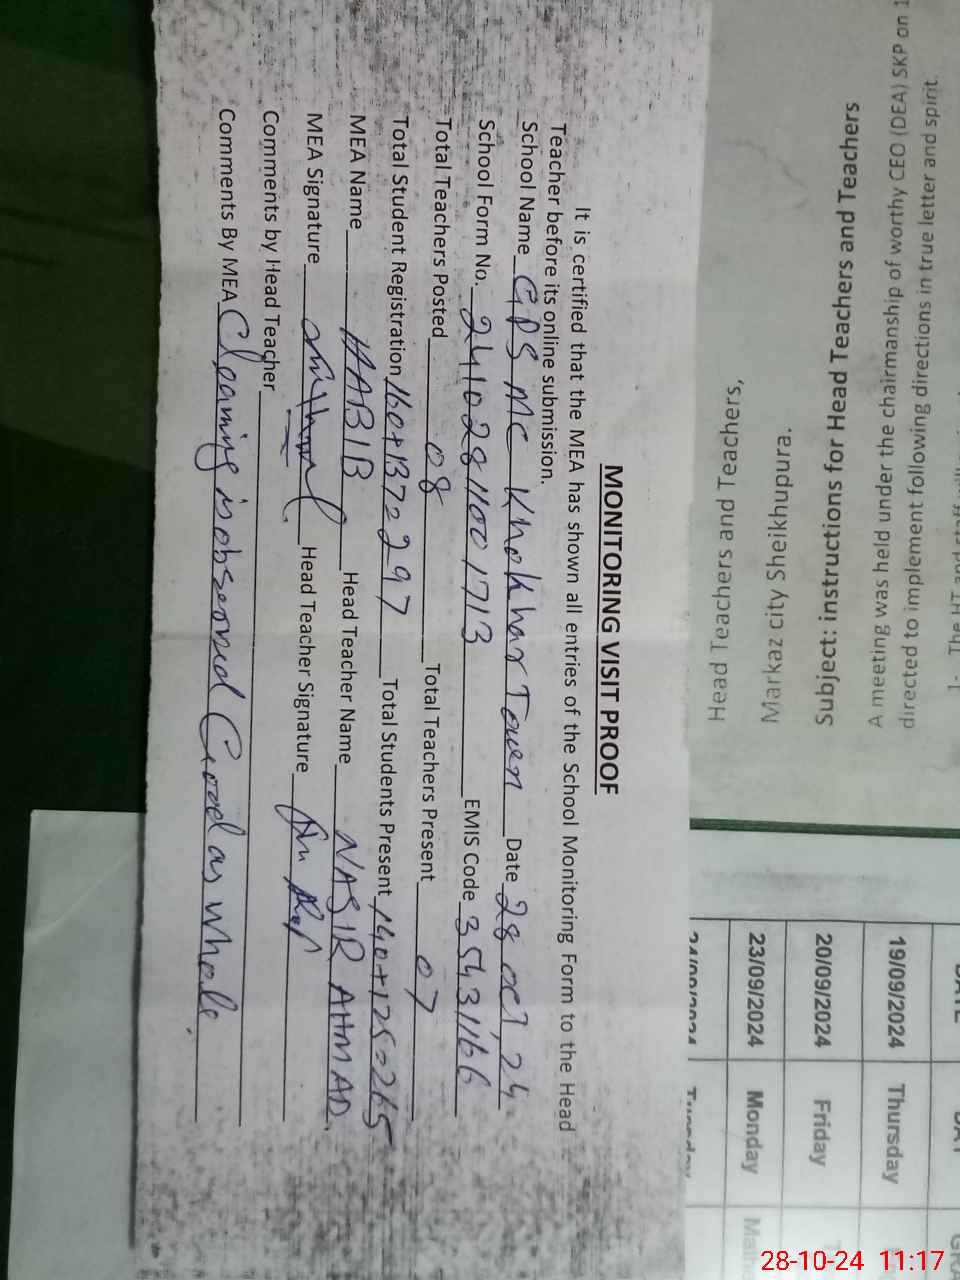 MONITORING VISIT PROOF
It is certified that the MEA has shown all entries of the School Monitoring Form to the Head
Teacher before its online submission.
School Name GPS MC Khokhar Town Date 28 OCT, 24
School Form No. 2410281100 1713 EMIS Code 35431166
Total Teachers Posted 08 Total Teachers Present 07
Total Student Registration 160+137=297 Total Students Present 140+125=265
MEA Name HABIB Head Teacher Name NASIR AHMAD.
MEA Signature Head Teacher Signature
Comments by Head Teacher
Comments By MEA Cleaning is observed Good as whole.
Head Teachers and Teachers,
Markaz city Sheikhupura.
Subject: instructions for Head Teachers and Teachers
A meeting was held under the chairmanship of worthy CEO (DEA) SKP on 1
directed to implement following directions in true letter and spirit.
1- The
19/09/2024 Thursday
20/09/2024 Friday
23/09/2024 Monday
24/09/2024 Tuesday
28-10-24 11:17